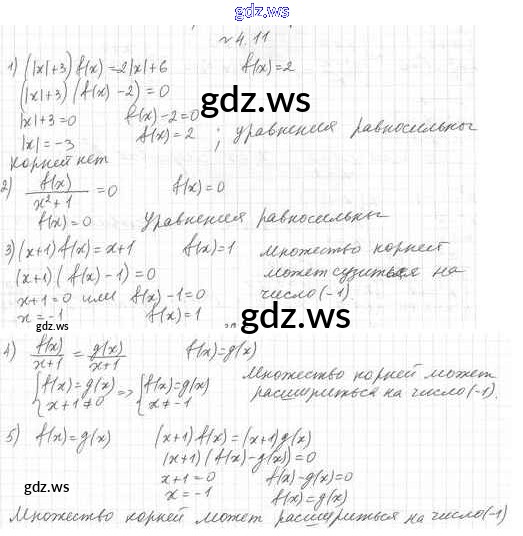 gdz.ws
№ 4.11
1) (|x|+3) f(x) = 2|x|+6 f(x)=2
(|x|+3) (f(x) -2) = 0
|x|+3=0 f(x)-2=0
|x| = -3 f(x)=2 ; уравнения равносильны
корней нет
gdz.ws
2) f(x)/(x²+1) = 0 f(x)=0
f(x)=0 Уравнения равносильны
3) (x+1) f(x) = x+1 f(x)=1 множество корней
(x+1) (f(x) -1) = 0 может сузиться на
x+1=0 или f(x)-1=0 число (-1).
x = -1 f(x)=1
gdz.ws
gdz.ws
4) f(x)/(x+1) = g(x)/(x+1) f(x)=g(x)
{f(x)=g(x) => {f(x)=g(x) Множество корней может
x+1≠0 x≠-1 расшириться на число (-1).
5) f(x)=g(x) (x+1) f(x)=(x+1)g(x)
(x+1) (f(x)-g(x))=0
x+1=0 f(x)-g(x)=0
x = -1 f(x)=g(x)
gdz.ws
gdz.ws
Множество корней может расшириться на число (-1)